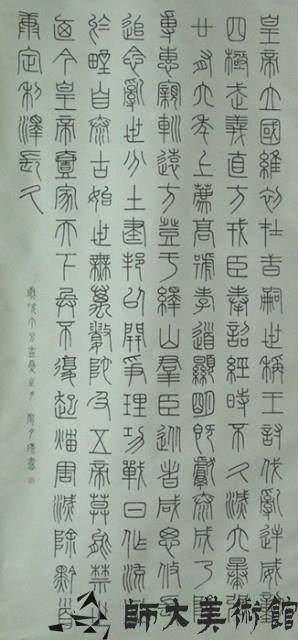 皇帝立國維初在昔嗣世稱王討伐亂逆威動
四極武義直方戎臣奉詔經時不久滅六暴強
廿有六年上薦高號孝道顯明既獻泰成乃降
專惠親巡遠方登于繹山群臣從者咸思攸長
追念亂世分土建邦以開爭理功戰日作流血
於野自泰古始世無萬數陀及五帝莫能禁止
廼今皇帝壹家天下兵不復起烖害滅除黔首
康定利澤長久
師大美術館